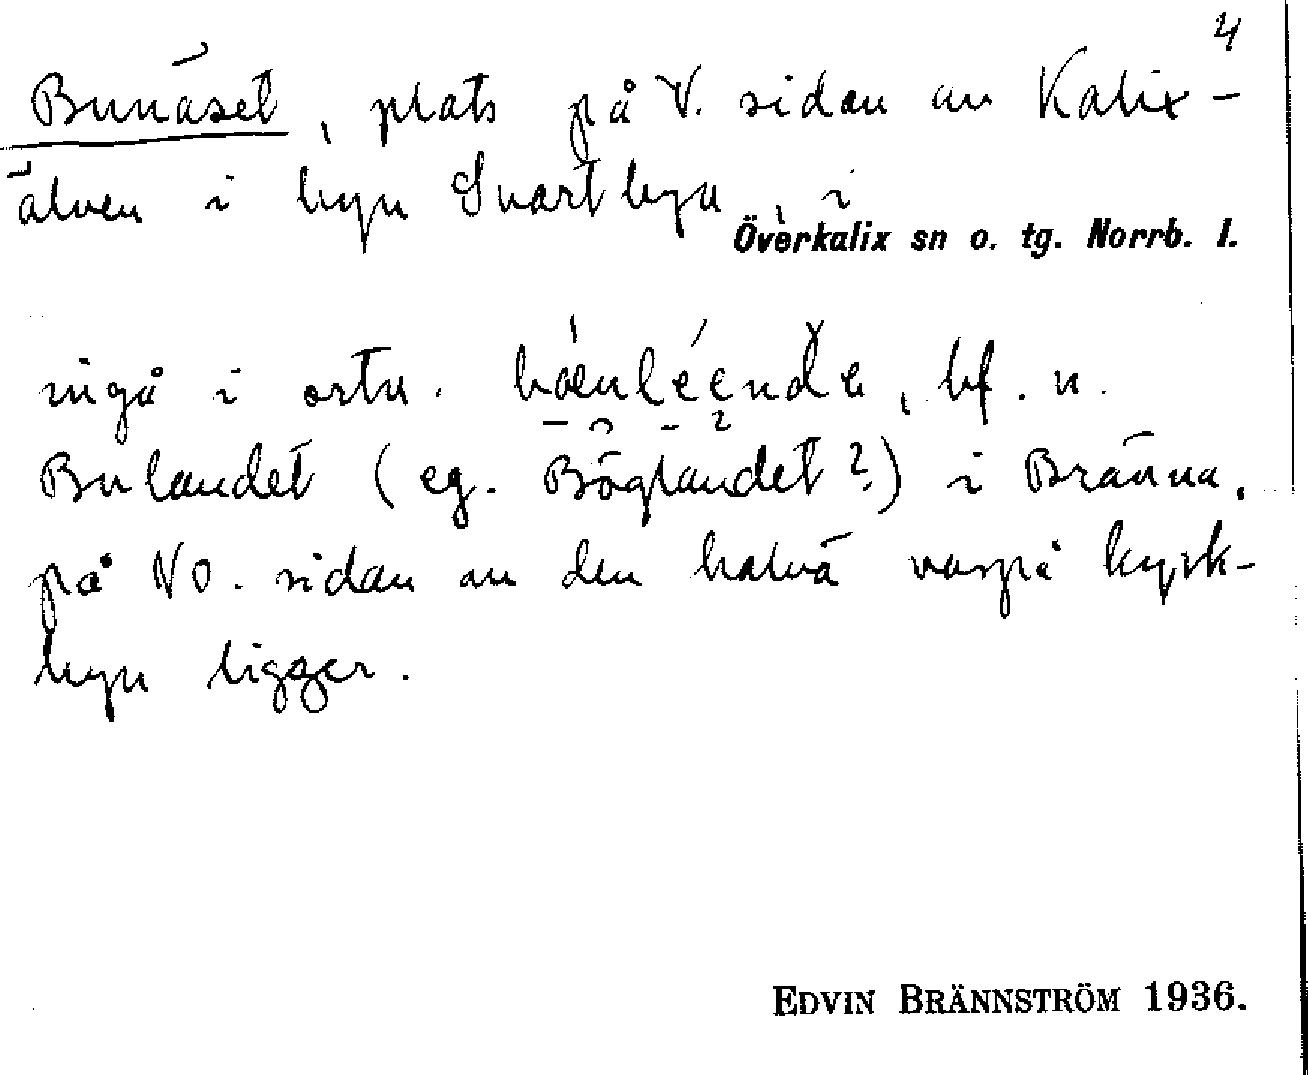 4
Bunäset, plats på V. sidan av Kalix-
älven i byn Svartbyn, i
Överkalix sn o. tg. Norrb. l.
ingå i ortn. , bf. n.
Bulandet (eg. Böglandet?) i Bränna,
på NO. sidan av den halvö varpå kyrk-
byn ligger.
EDVIN BRÄNNSTRÖM 1936.